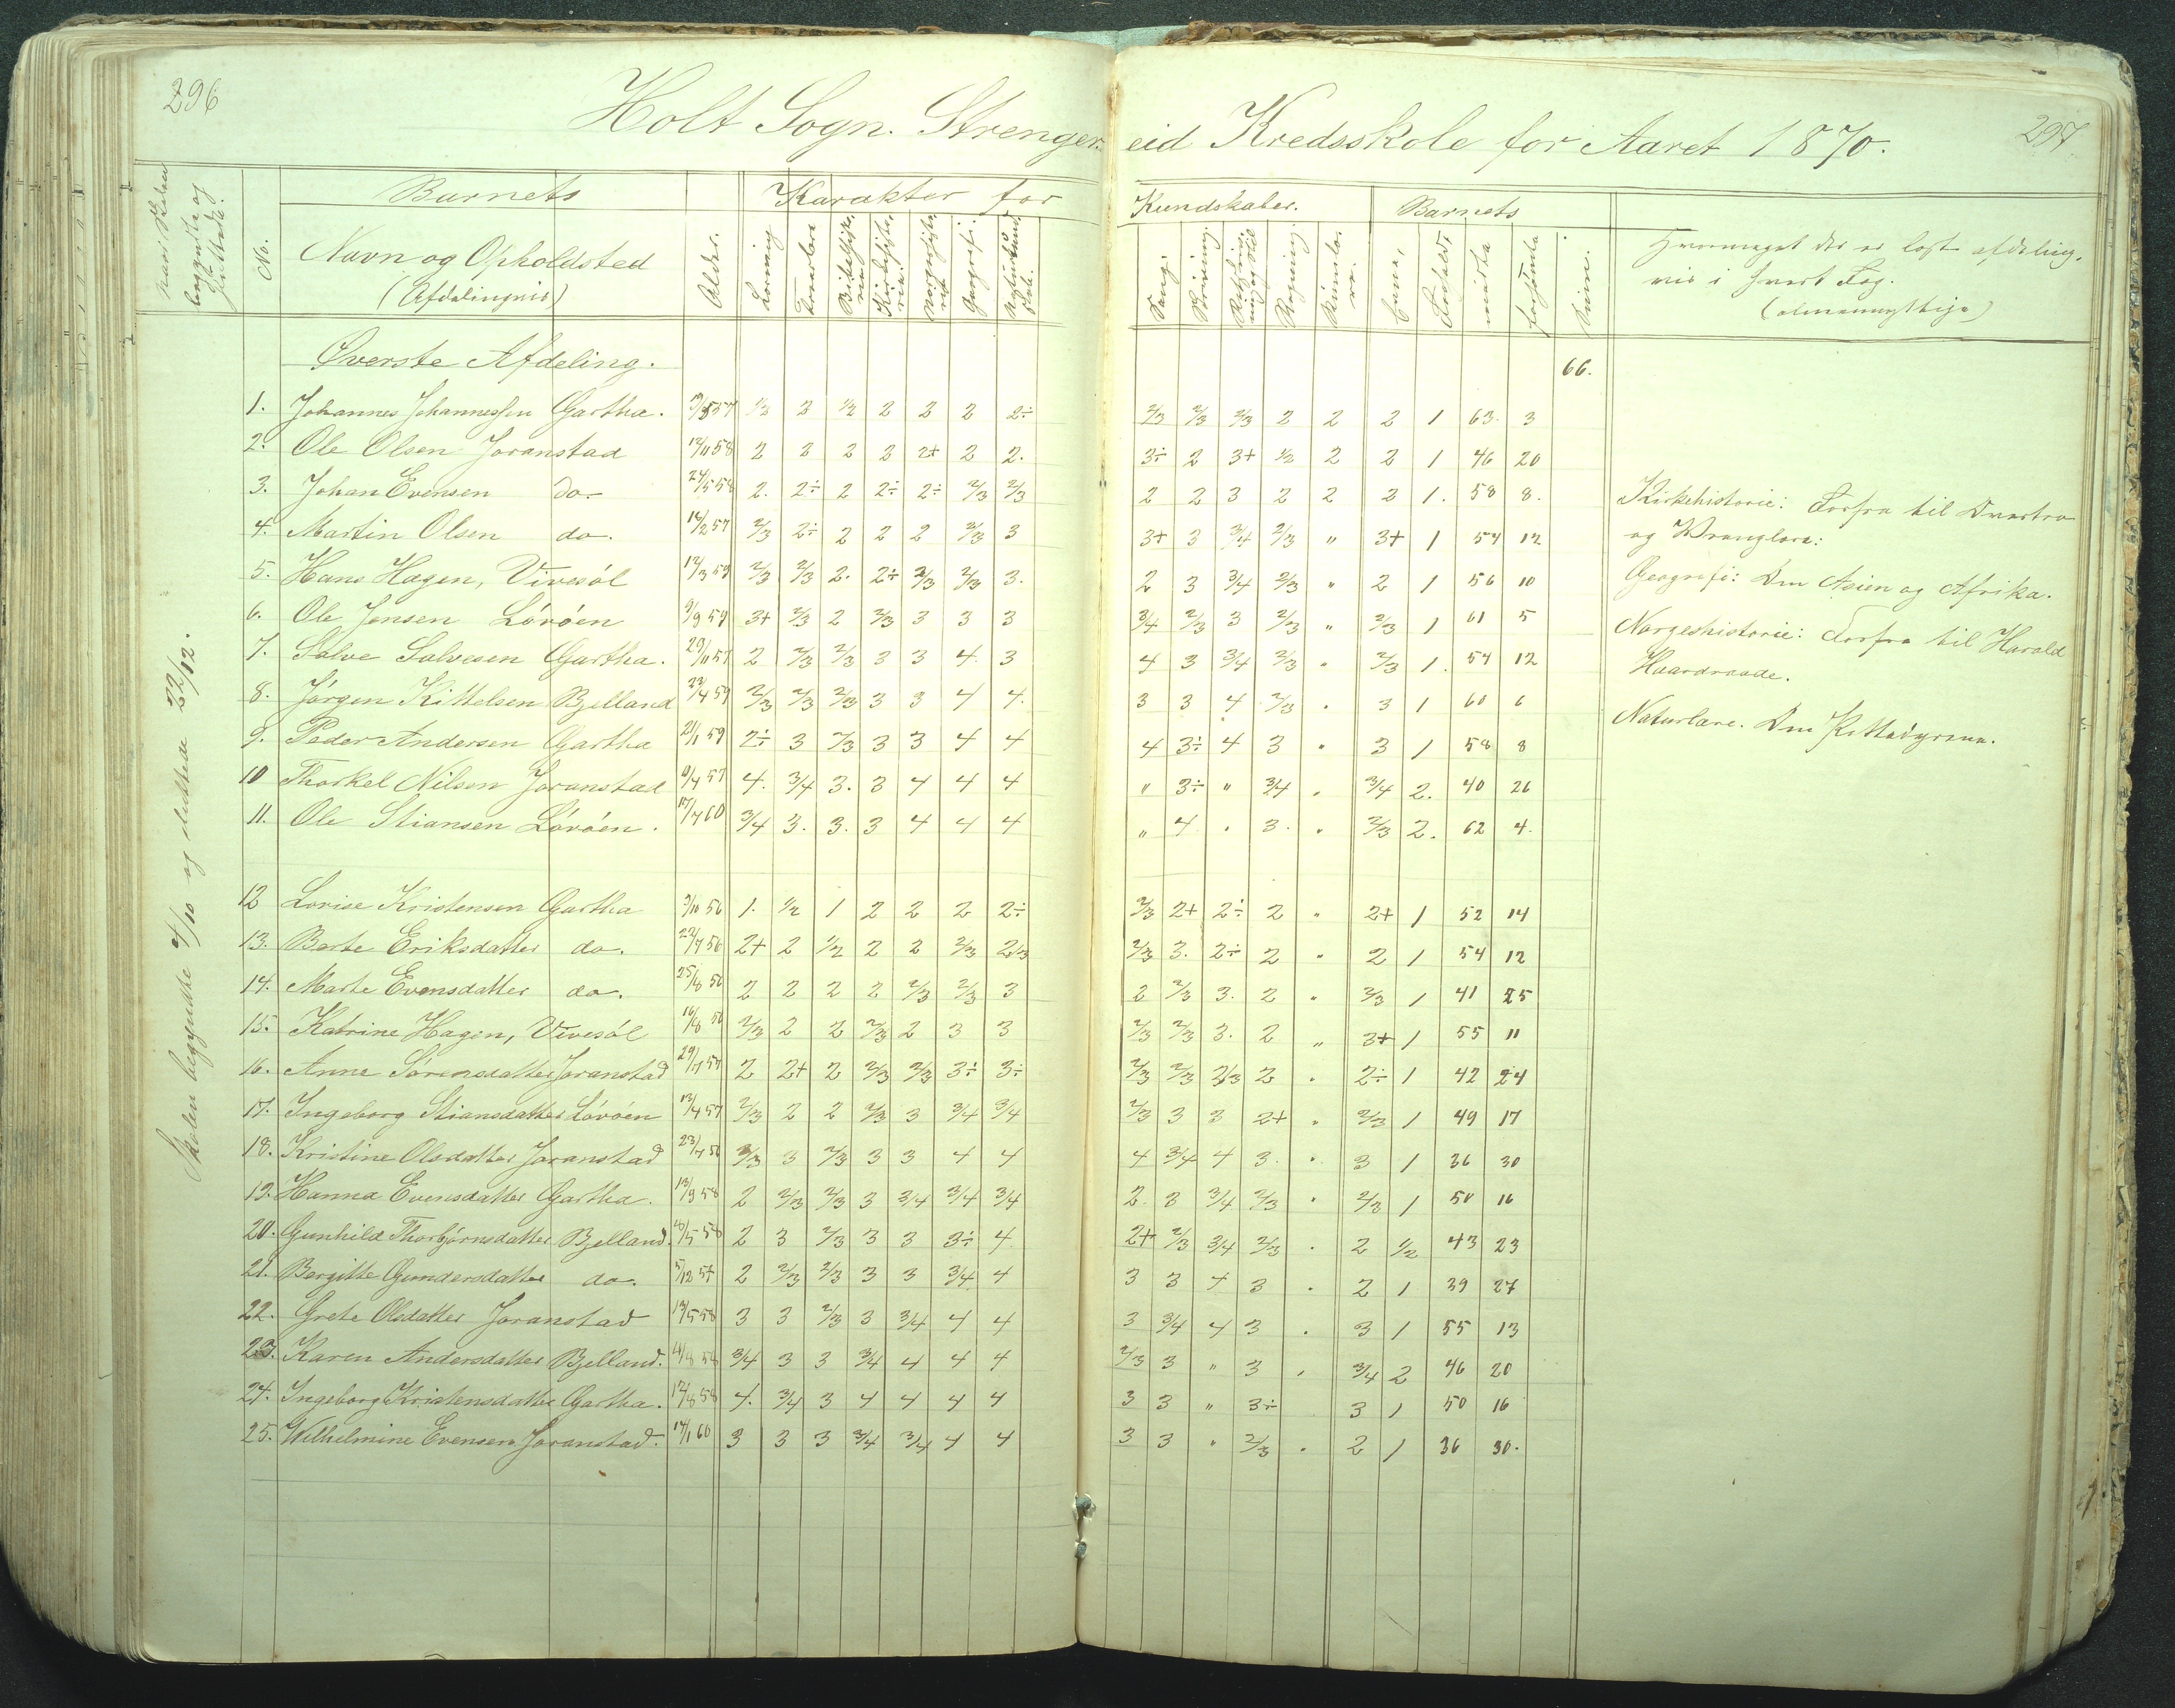 296
Holt Sogn. Strenger-
eid Kredsskole for Aaret 1870.
297
Naar Skolen begyndte og sluttede.
No.
Barnets
Navn og Opholdsted
(Afdelingsvis)
Alder.
Karakter for
Læsning
Troeslære
Bibelhistorie
Kirkehistorie
Norgeshistorie
Geografi.
Naturkundskab.
Kundskaber.
Sang.
Skrivning.
Retskrivning og Stil
Regning.
Barnets
Evner,
Forhold,
mødte
forsømte
Hvormeget der er læst afdeling-
vis i hvert Fag.
(almennyttige)
Skolen begyndte 4/10 og sluttede 22/12.
Øverste Afdeling.
66.
1. Johannes Johannessen Gartha. 57 1/2 2 1/2 2 2 2 2÷ 2/3 2/3 2/3 2 2 2 1 63 3
2. Ole Olsen Joranstad 12/11 58 2 2 2 2 2+ 2 2. 3÷ 2 3+ 1/2 2 2 1 46 20
3. Johan Evensen do. 24/5 58 2. 2÷ 2 2÷ 2÷ 2/3 2/3 2 2 3 2 2 2 1. 58 8.
4. Martin Olsen do. 14/2 57 2/3 2÷ 2 2 2 2/3 3 3+ 3 3/4 2/3 " 3+ 1 54 12
5. Hans Hagen, Vivesøl 12/3 59 2/3 2/3 2. 2÷ 2/3 2/3 3. 2 3 3/4 2/3 " 2 1 56 10
6. Ole Jensen Løvøen 9/9 59 3+ 2/3 2 2/3 3 3 3 3/4 2/3 3 2/3 " 2/3 1 61 5
7. Salve Salvesen Gartha. 29/11 57 2 2/3 2/3 3 3 4 3 4 3 3/4 2/3 " 2/3 1. 54 12
8. Jørgen Kittelsen Bjelland 22/4 59 2/3 2/3 2/3 3 3 4 4. 3 3 4 2/3 " 3 1 60 6
9. Peder Andersen Gartha 21/1 59 2÷ 3 2/3 3 3 4 4 4 3÷ 4 3 " 3 1 58 8
10 Thorkel Nilsen Joranstad 6/4 57 4. 3/4 3. 3 4 4 4 " 3÷ " 3/4 " 3/4 2. 40 26
11. Ole Stiansen Løvøen. 17/4 60 3/4 3. 3. 3 4 4 4 " 4 " 3. " 2/3 2. 62 4.
12 Lovise Kristensen Gartha 3/10 56 1. 1/2 1 2 2 2 2÷ 2/3 2+ 2÷ 2 " 2+ 1 52 14
13. Berte Eriksdatter do. 22/7 56 2+ 2 1/2 2 2 2/3 2/3 2/3 3. 2÷ 2 " 2 1 54 12
14. Marte Evensdatter do. 25/8 56 2 2 2 2 2/3 2/3 3 2 2/3 3. 2 " 2/3 1 41 25
15. Katrine Hagen, Vivesøl 16/8 56 2/3 2 2 2/3 2 3 3 2/3 2/3 3. 2 " 3+ 1 55 11
16. Anne Sørensdatter Joranstad 29/7 57 2 2+ 2 2/3 2/3 3÷ 3÷ 2/3 2/3 2/3 2 " 2÷ 1 42 24
17. Ingeborg Stiansdatter Løvøen 13/4 57 2/3 2 2 2/3 3 3/4 3/4 2/3 3 3 2+ " 2/3 1 49 17
18. Kristine Olsdatter Joranstad 23/7 56 2/3 3 2/3 3 3 4 4 4 3/4 4 3. " 3 1 36 30
19. Hanna Evensdatter Gartha. 13/9 58 2 2/3 2/3 3 3/4 3/4 3/4 2. 3 3/4 2/3 " 2/3 1 50 16
20. Gunhild Thorbjørnsdatter Bjelland. 58 2 3 2/3 3 3 3÷ 4 2+ 2/3 3/4 2/3 " 2 1/2 43 23
21. Bergitte Gundersdatter do. 5/12 57 2 2/3 2/3 3 3 3/4 4 3 3 4 3 " 2 1 39 27
22. Grete Olsdatter Joranstad 13/5 58 3 3 2/3 3 3/4 4 4 3 3/4 4 3 " 3 1 55 13
23. Karen Andersdatter Bjelland. 58 3/4 3 3 3/4 4 4 4 2/3 3 " 3 " 3/4 2 46 20
24. Ingeborg Kristensdatter Gartha. 12/8 58 4. 3/4 3 4 4 4 4 3 3 " 3÷ 3 1 50 16
25. Wilhelmine Evensen Joranstad. 14/1 60 3 3 3 3/4 3/4 4 4 3 3 " 2/3 " 2 1 36 30.
Kirkehistorie: Forfra til
og Vranglære:
Geografi: Om Asien og Afrika.
Norgeshistorie: Forfra til Harald
Haardraade.
Naturlære. Om Pattedyrene.